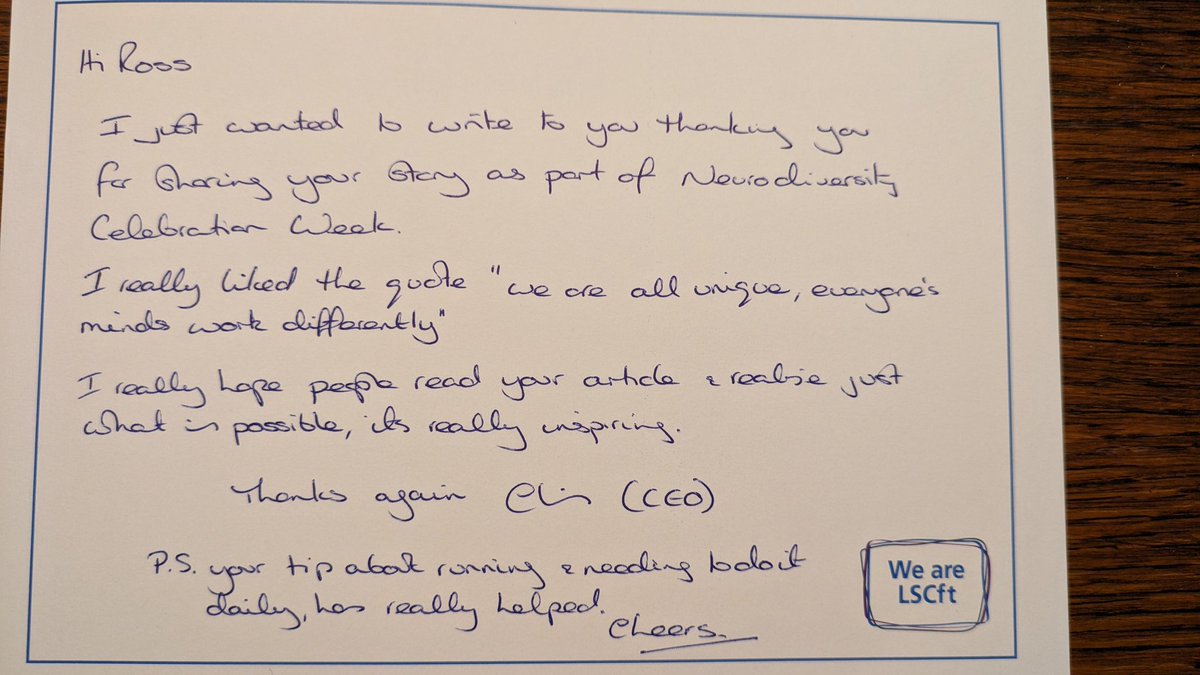 Hi Ross
I just wanted to write to you thanking you
for sharing your story as part of Neurodiversity
Celebration Week.
I really liked the quote "we are all unique, everyone's
minds work differently"
I really hope people read your article & realise just
what is possible, its really inspiring.
Thanks again (CEO)
P.S. your tip about running & needing to do it
daily, has really helped.
Cheers.
We are
LSCft